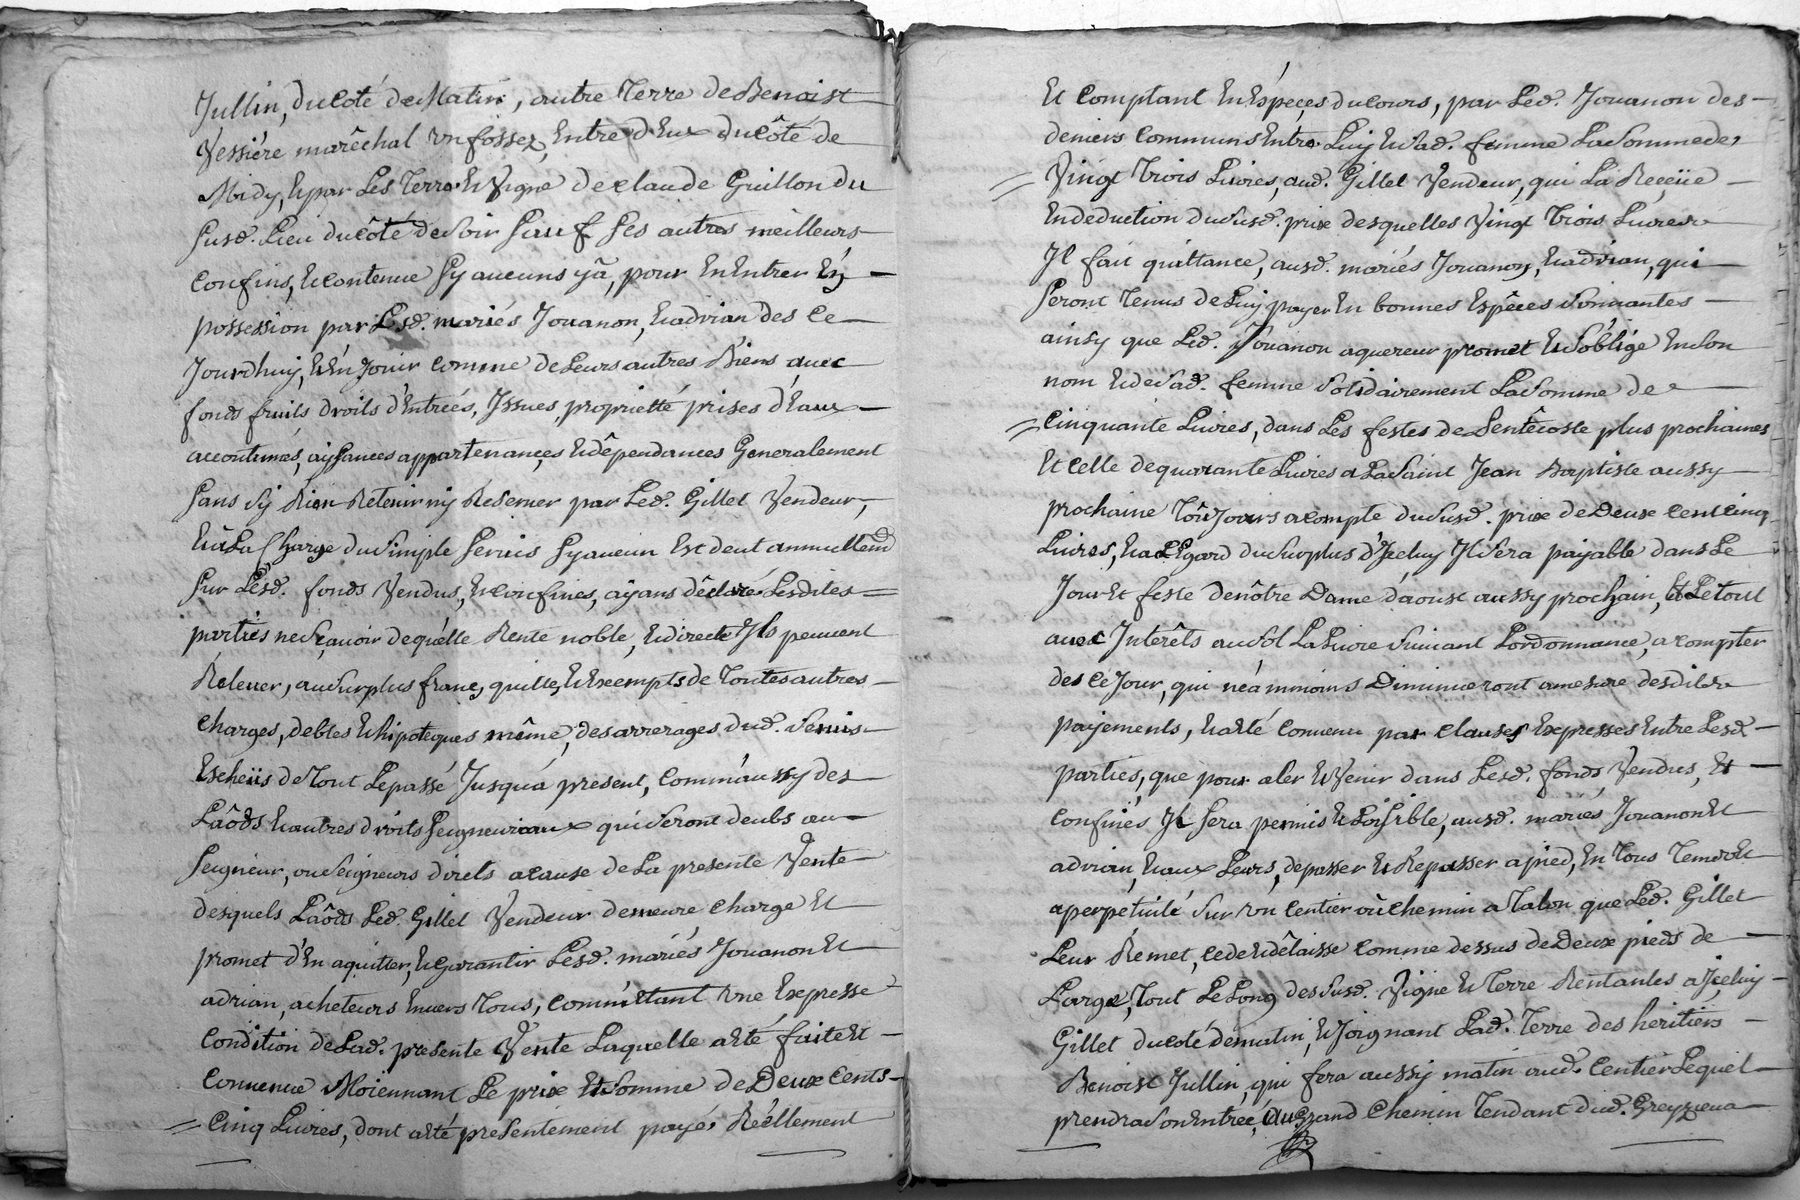 Jullin, du Coté de Matin, autre Terre de Benoist
Vessiére marêchal un fossez, Entre d'Eux du côté de
Midy, Et par Les Terre Et Vigne de Claude Guillon du
susd. Lieu du côté de soir sauf ses autres meilleurs
Confins, Et contenue sy aucuns y a, pour En Entrer En
possession par Lesd. mariés Jouanon, Et adrian des Ce
Jourdhuy, Et En Jouir comme de Leurs autres Biens avec
fonds fruits droits d'Entrées, Issues, proprietté prises d'Eaux
accoutumés, aysances appartenances Et dêpendances Generalement
sans s'y Rien Retenir ny Reserver par Led. Gillet Vendeur,
Et à La Charge du simple servis sy aucun Est deut annuellemt
sur Lesd. fonds Vendus, Et confinés, aÿans dêclaré Lesdites
parties ne sçavoir de quélle Rente noble, Et directe Ils peuvent
Relever, au surplus franc, quitte, Et Exempts de Toutes autres
charges, debtes Et hipoteques même, des arrerages dud. servis
Eschëus de Tout Le passé Jusqu'á present, Comm'aussy des
Laôds Et autres droits seigneuriaux qui seront deubs au
seigneur, ou seigneurs direts a cause de La presente Vente
desquels Laôds Led. Gillet Vendeur demeure chargé Et
promet d'En aquitter, Et garantir Lesd. mariés Jouanon Et
adrian, acheteurs Envers Tous, Commettant une Expresse
Condition de Lad. presente Vente Laquelle a Eté faite Et
Convenue Moiennant Le prix Et somme de Deux Cents
Cinq Livres, dont a Eté presentement payés Réellement
Et Comptant En Espéçes du Cours, par Led. Jouanon des
deniers Communs Entre Luy Et sad. femme La somme de
Vingt Trois Livres, aud. Gillet Vendeur, qui La Reçeüe
En deduction du susd. prix desquelles Vingt Trois Livres
Il fait quittance, ausd. mariés Jouanon, Et adrian, qui
seront Tenus de Luy payer En bonnes Espêces sonnantes
ainsy que Led. Jouanon aquereur promet Et s'oblige En son
nom Et de sad. femme solidairement La somme de
Cinquante Livres, dans Les festes de Pentêcoste plus prochaines
Et Celle de quarante Livres a La saint Jean Baptiste aussy
prochaine Toûjours a compte du susd. prix de Deux Cent Cinq
Livres, Et a L'Egard du surplus d'Iceluy Il sera payable dans Le
Jour Et féste de nôtre Dame d'aoust aussy prochain, Et Le tout
avec Interêts au sol La Livre suivant L'ordonnance, a compter
des Ce Jour, qui néammoins Diminueront a mesure desdits
payements, Et a Eté Convenu par Clauses Expresses Entre Lesd.
parties, que pour aler Et Venir dans Lesd. fonds Vendus, Et
Confinés Il sera permis Et Loisible, ausd. mariés Jouanon Et
adrian, Et aux Leurs, de passer Et Repasser a pied, En Tous Temps Et
a perpétuité sur un Centier ou Chemin a Talon que Led. Gillet
Leur Remet, cede Et dêlaisse Comme dessus de Deux pieds de
Large, Tout Le Long des susd. Vigne Et Terre Restantes a Iceluy
Gillet du coté de matin, Et Joignant Lad. Terre des heritiers
Benoist Jullin, qui sera aussy matin aud. Centier Lequel
prendra son Entrée, Au Grand Chemin Tendant dud. Greyzieux